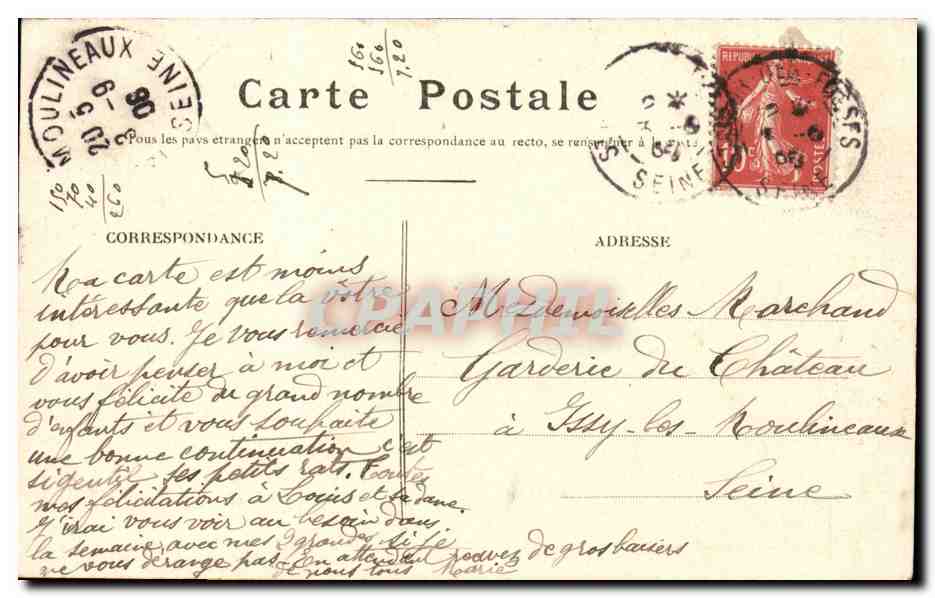 MOULINEAUX
SEINE
20 5
9 - 6
06
160
160
7.20
RÉPUBLIQUE
10c
POSTES
SEINE
Carte Postale
Tous les pays étrangers n'acceptent pas la correspondance au recto, se renseigner à la
9.20
7.20
150
70
40
260
CORRESPONDANCE
Ma carte est moins
intéressante que la vôtre
pour vous. Je vous remercie
d'avoir penser à moi et
vous félicite du grand nombre
d'enfants et vous souhaite
une bonne continuation c'est
si gentil ses petits rats. Toutes
mes félicitations à Louis et sa dame.
J'irai vous voir au besoin dans
la semaine avec mes 2 grandes si je
ne vous dérange pas. En attendant recevez de gros baisers
de nous tous Marie
ADRESSE
Mesdemoiselles Marchand
Garderie du Château
à Issy-les-Moulineaux
Seine
CPAPHIL